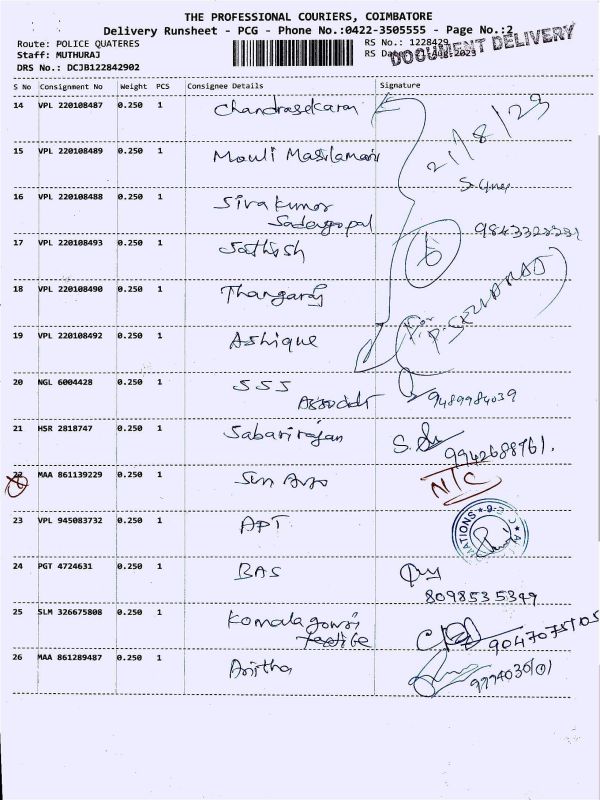 THE PROFESSIONAL COURIERS, COIMBATORE
Delivery Runsheet - PCG - Phone No.:0422-3505555 - Page No.:2
Route: POLICE QUATERES
RS No.: 1228429
DOCUMENT DELIVERY
Staff: MUTHURAJ
RS Da Aug 2023
DRS No.: DCJB122842902
S No Consignment No Weight PCS Consignee Details Signature
14 VPL 220108487 0.250 1 Chandrasekaran
21/8/23
15 VPL 220108489 0.250 1 Mouli Masilamani
16 VPL 220108488 0.250 1 Sivakumar
Sadagopal
17 VPL 220108493 0.250 1 Sathish
6
18 VPL 220108490 0.250 1 Thangaraj
For
P. SELVARAJ
19 VPL 220108492 0.250 1 Ashique
20 NGL 6004428 0.250 1 SSS
Associat
9489984039
21 HSR 2818747 0.250 1 Sabarirajan
9942688761.
22 MAA 861139229 0.250 1 N/C
23 VPL 945083732 0.250 1 APT
24 PGT 4724631 0.250 1 BAS
8098535399
25 SLM 326675808 0.250 1 Komalagowri
Textile
26 MAA 861289487 0.250 1